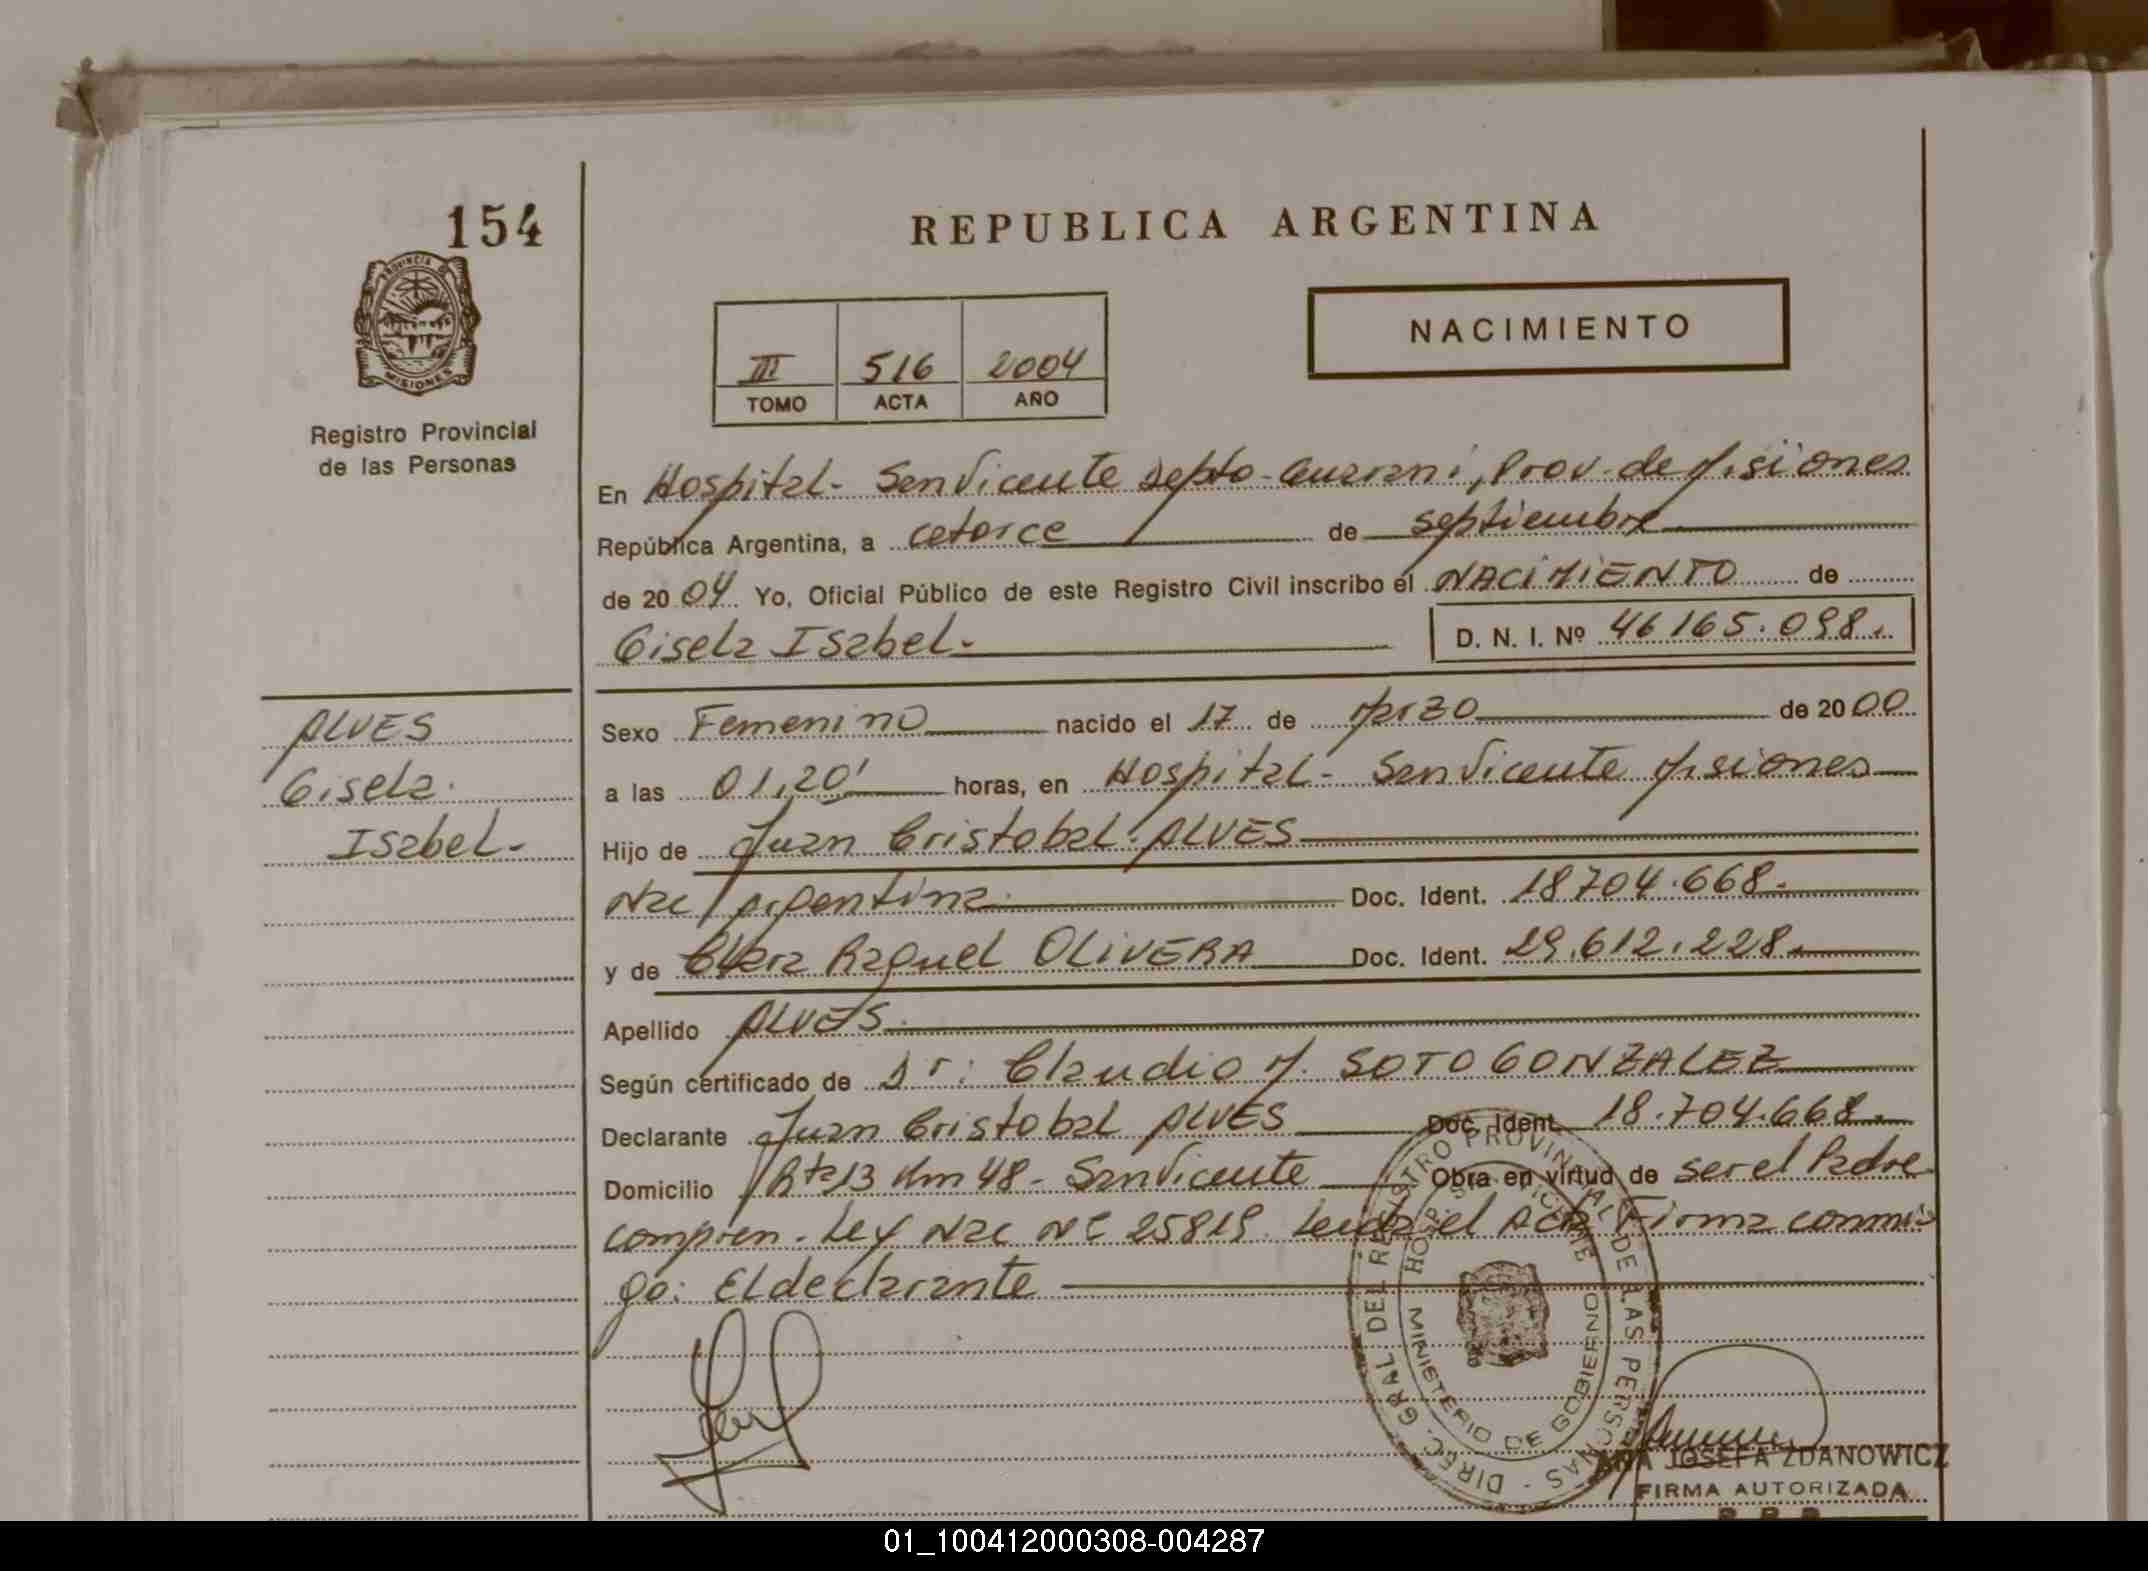 154
REPUBLICA ARGENTINA
PROVINCIA DE
MISIONES
Registro Provincial
de las Personas
NACIMIENTO
III 516 2004
TOMO ACTA AÑO
En Hospital - San Vicente Depto - Guarani, Prov. de Misiones
República Argentina, a catorce de septiembre
de 20 04 Yo, Oficial Público de este Registro Civil inscribo el NACIMIENTO de
Gisela Isabel.-
D. N. I. Nº 46165.098.
ALVES
Gisela.
Isabel.-
Sexo Femenino nacido el 17 de Marzo de 20 00
a las 01,20' horas, en Hospital - San Vicente Misiones
Hijo de Juan Cristobal ALVES
Nac/ Argentina. Doc. Ident. 18704.668.
y de Raquel OLIVERA Doc. Ident. 29.612.228.
Apellido ALVES.
Según certificado de Dr: Claudio M. SOTO GONZALEZ
Declarante Juan Cristobal ALVES Doc. Ident. 18.704.668.
Domicilio Rta 13 Km 48 - San Vicente Obra en virtud de ser el Padre
compren. Ley Nac Nº 25819. Leida el Acta Firma conmi
go: El declarante
DIREC. GRAL DEL REGISTRO PROVINCIAL DE LAS PERSONAS -
HOSP. SAN VICENTE
MINISTERIO DE GOBIERNO
ANA JOSEFA ZDANOWICZ
FIRMA AUTORIZADA
01_100412000308-004287